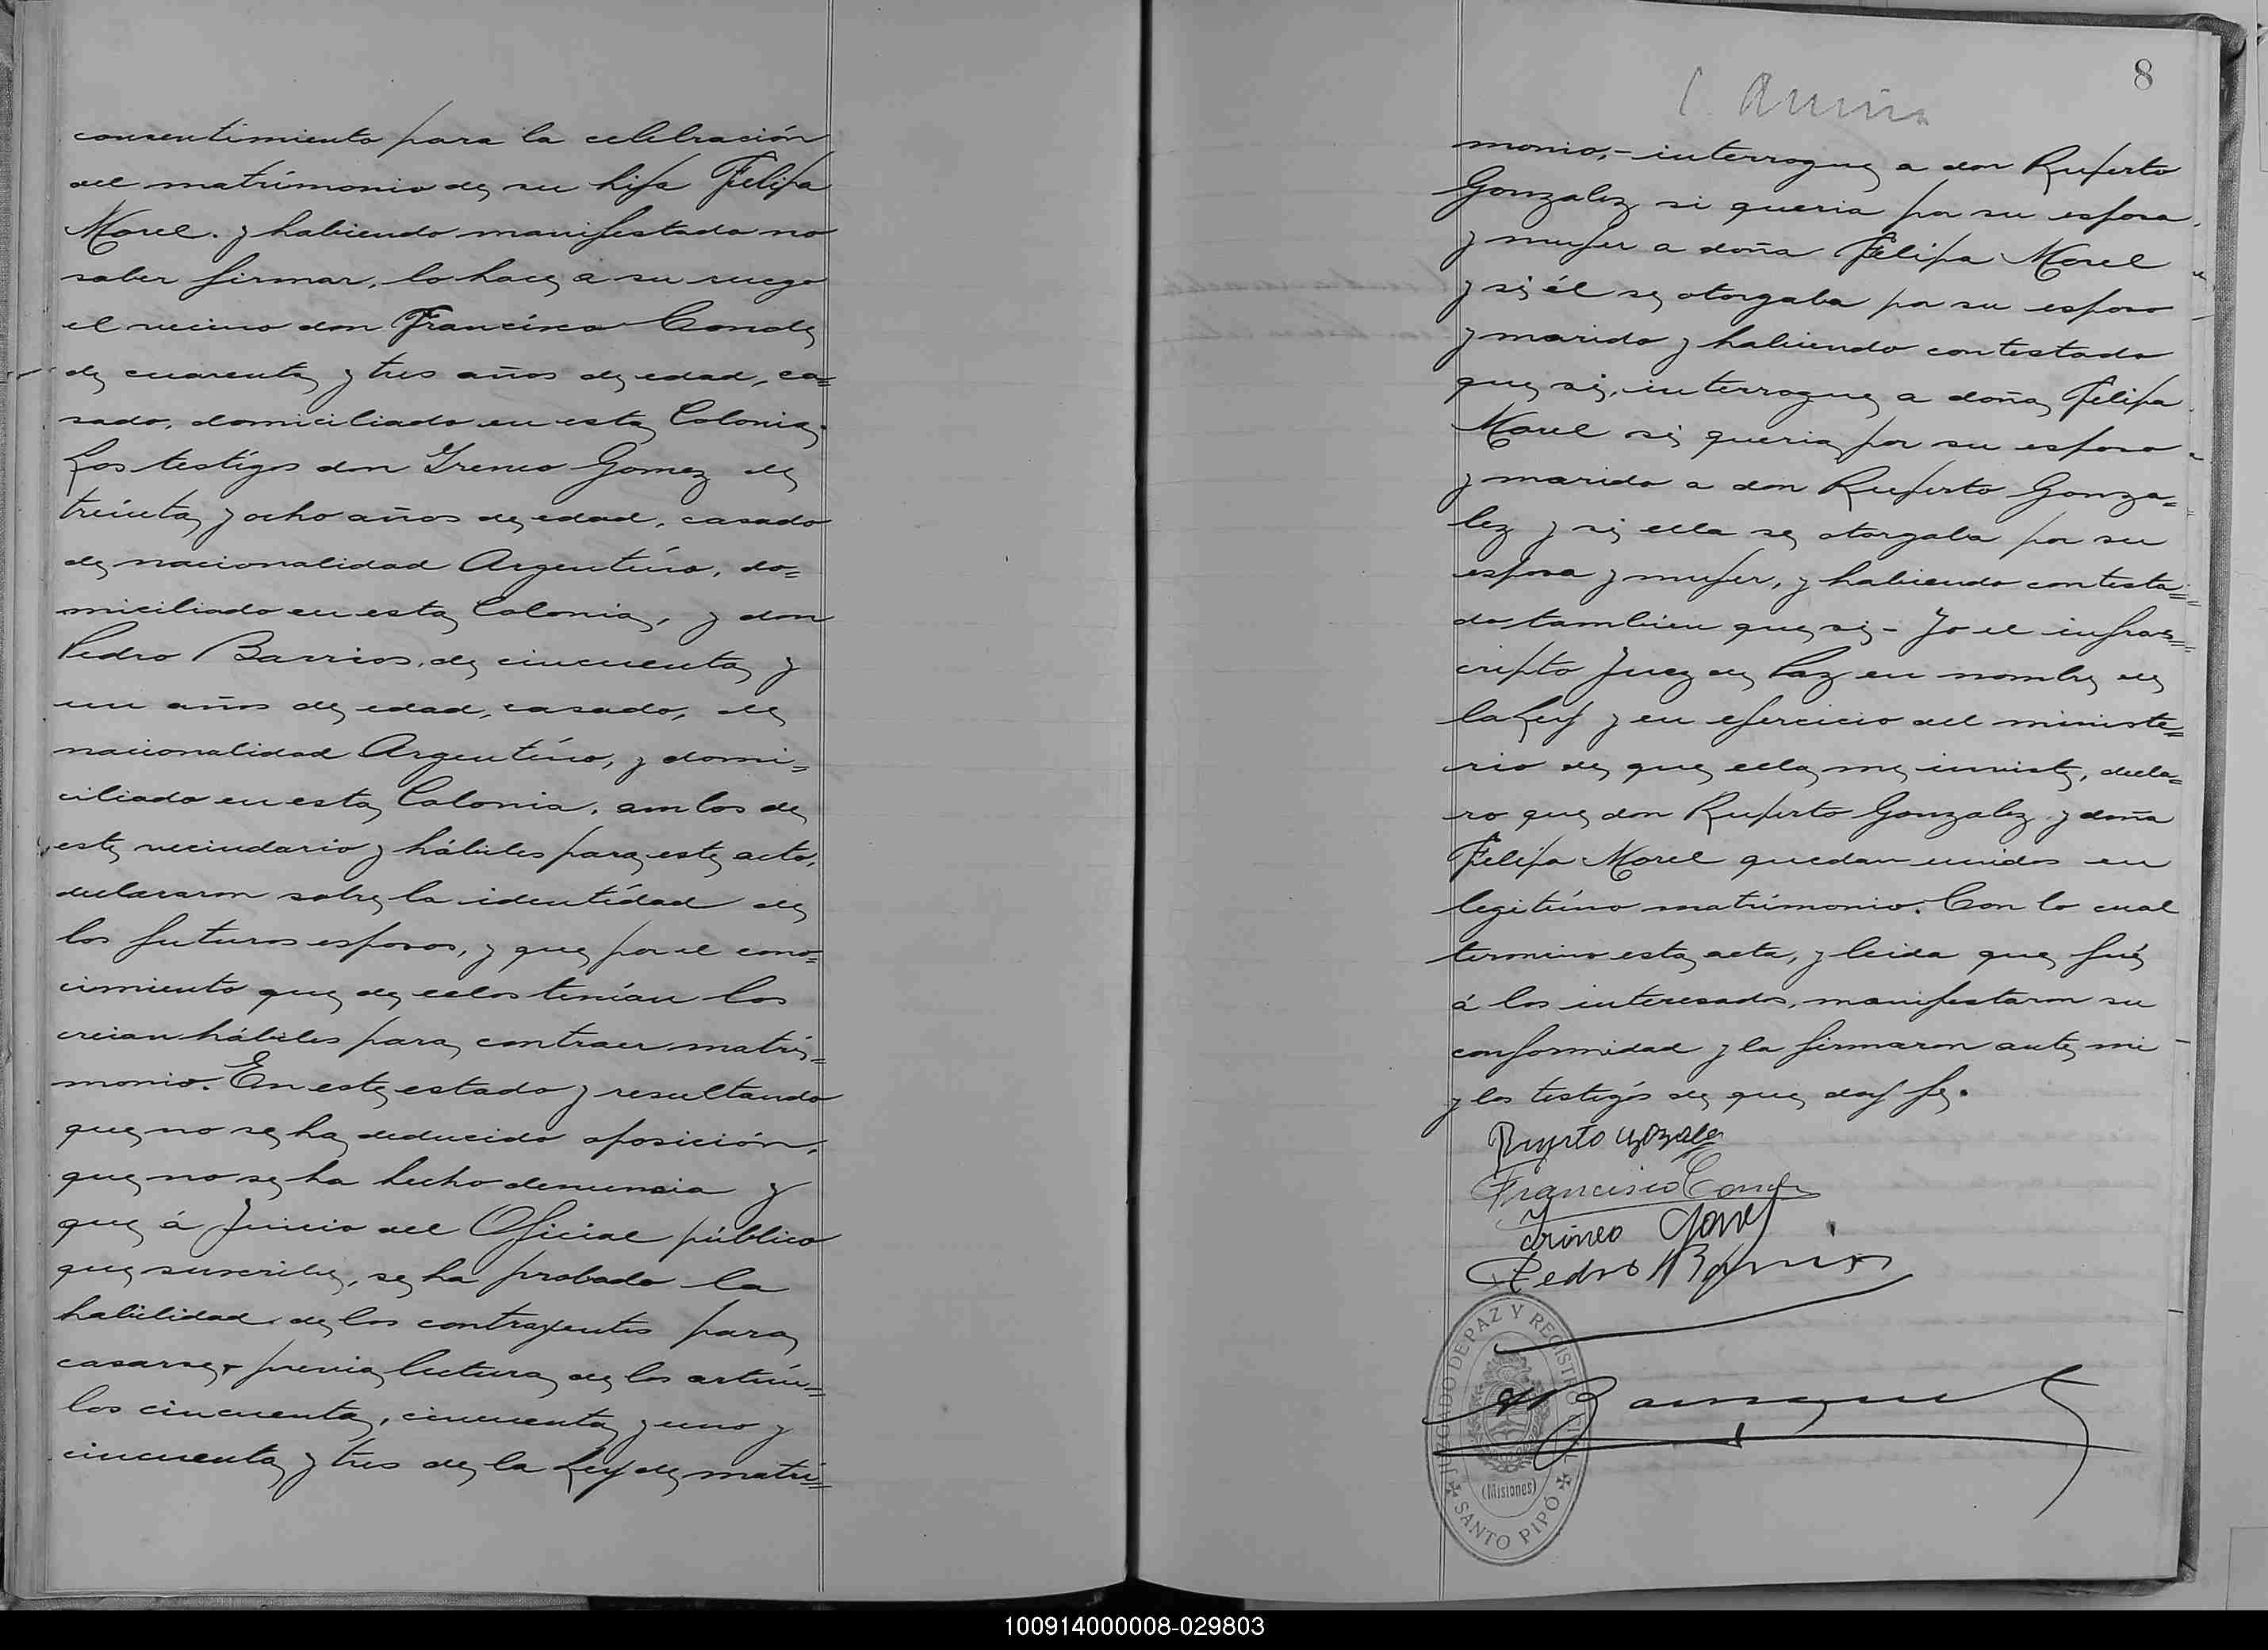 consentimiento para la celebración
del matrimonio de su hija Felipa
Morel. y habiendo manifestado no
saber firmar, lo hace a su ruego
el vecino don Francisco Conde
de cuarenta y tres años de edad, ca=
sado, domiciliado en esta Colonia.
Los testigos don Ireneo Gomez de
treinta y ocho años de edad, casado
de nacionalidad Argentino, do=
miciliado en esta Colonia, y don
Pedro Barrios, de cincuenta y
un años de edad, casado, de
nacionalidad Argentino, y domi=
ciliado en esta Colonia, ambos de
este vecindario y hábiles para este acto,
declararon sobre la identidad de
los futuros esposos, y que por el cono=
cimiento que de ellos tenían los
creian hábiles para contraer matri=
monio. En este estado y resultando
que no se ha deducido oposición,
que no se ha hecho denuncia y
que á Juicio del Oficial público
que suscribe, se ha probado la
habilidad de los contrayentes para
casarse, previa lectura de los artícu=
los cincuenta, cincuenta y uno y
cincuenta y tres de la Ley de matri=
8
monio,- interrogue a don Ruperto
Gonzalez si queria por su esposa
y mujer a doña Felipa Morel
y si él se otorgaba por su esposo
y marido y habiendo contestado
que si, interrogue a doña Felipa
Morel si queria por su esposo
y marido a don Ruperto Gonza=
lez y si ella se otorgaba por su
esposa y mujer, y habiendo contesta=
do tambien que si - Yo el infras=
cripto Juez de Paz en nombre de
la Ley y en ejercicio del ministe=
rio de que ella me inviste, decla=
ro que don Ruperto Gonzalez y doña
Felipa Morel quedan unidos en
legitimo matrimonio. Con lo cual
termino esta acta, y leida que fué
á los interesados, manifestaron su
conformidad y la firmaron ante mi
y los testigos de que doy fe.
Ruperto
Francisco Conde
Irineo Gomez
Pedro Barrios
JUZGADO DE PAZ Y REGISTRO CIVIL
(Misiones)
SANTO PIPÓ
100914000008-029803